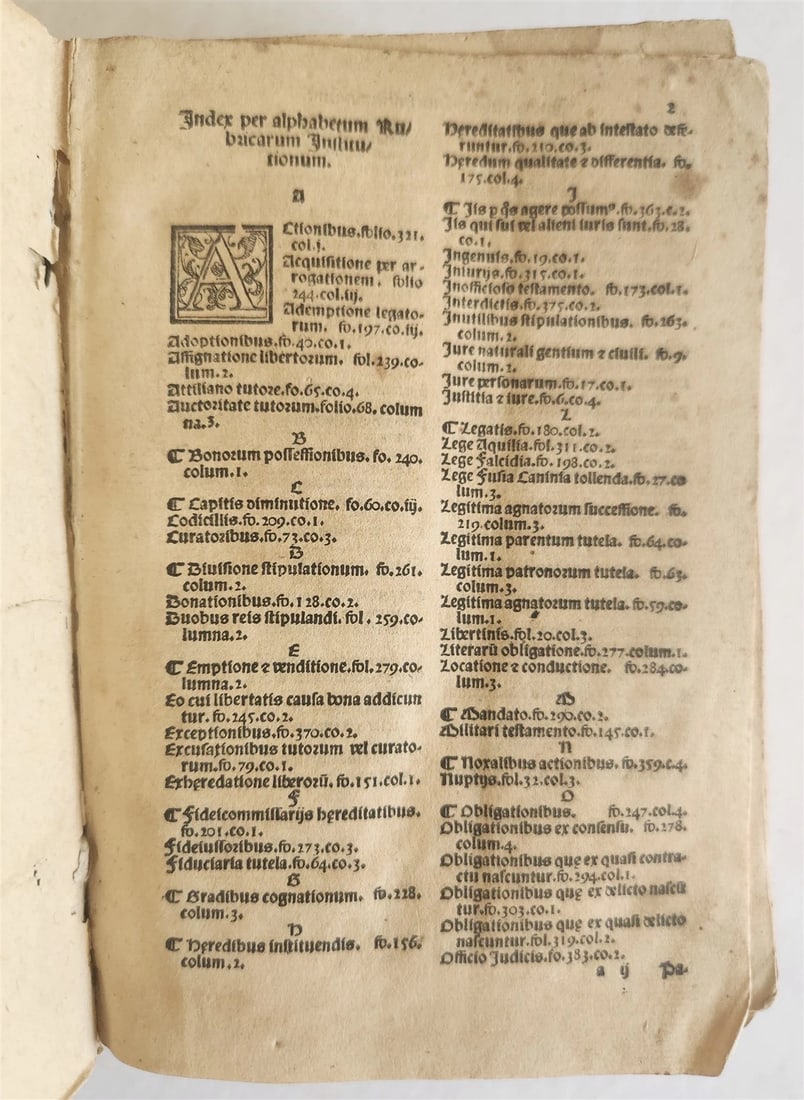 2
Index per alphabetum Ru/
bricarum Institu/
tionum.
A
Actionibus.folio.321.
col.j.
Acquisitione per ar-
rogationem. folio
244.col.iij.
Ademptione legato-
rum. fo.197.co.iij.
Adoptionibus.fo.40.co.1.
Assignatione libertorum. fol.239.co-
lum.2.
Attiliano tutore.fo.65.co.4.
Auctoritate tutorum.folio.68. colum
na.3.
B
¶ Bonorum possessionibus. fo. 240.
colum.1.
C
¶ Capitis diminutione. fo.60.co.iij.
Codicillis.fo.209.co.1.
Curatoribus.fo.73.co.3.
D
¶ Diuisione stipulationum. fo.261.
colum.2.
Donationibus.fo.128.co.2.
Duobus reis stipulandi. fol. 259.co-
lumna.2.
E
¶ Emptione ⁊ venditione.fol.279.co-
lumna.2.
Eo cui libertatis causa bona addicun
tur. fo.245.co.2.
Exceptionibus.fo.370.co.2.
Excusationibus tutorum vel curato-
rum.fo.79.co.1.
Exheredatione liberorū. fo.151.col.1.
F
¶ Fideicommissarijs hereditatibus.
fo.201.co.1.
Fideiussoribus.fo.273.co.3.
Fiduciaria tutela.fo.64.co.3.
G
¶ Gradibus cognationum. fo.228.
colum.3.
H
¶ Heredibus instituendis. fo.156.
colum.2.
Hereditatibus que ab intestato defe-
runtur.fo.210.co.3.
Heredum qualitate ⁊ differentia. fo.
175.col.4.
I
¶ Iis p q̄s agere possumꝰ.fo.363.c.2.
Iis qui sui vel alieni iuris sunt.fo.28.
co.1.
Ingenuis.fo.19.co.1.
Iniurijs.fo.315.co.1.
Inofficioso testamento. fo.173.col.1.
Interdictis.fo.375.co.2.
Inutilibus stipulationibus. fo.263.
colum.2.
Iure naturali gentium ⁊ ciuili. fo.9.
column.2.
Iure personarum.fo.17.co.1.
Iustitia ⁊ iure.fo.6.co.4.
L
¶ Legatis.fo.180.col.2.
Lege Aquilia.fol.311.co.2.
Lege Falcidia.fo.198.co.2.
Lege Fusia Caninia tollenda.fo.27.co
lum.3.
Legitima agnatorum successione. fo.
219.colum.3.
Legitima parentum tutela. fo.64.co-
lum.1.
Legitima patronorum tutela. fo.63.
colum.3.
Legitima agnatorum tutela.fo.59.co-
lum.1.
Libertinis.fol.20.col.3.
Literarū obligatione.fo.277.colum.1.
Locatione ⁊ conductione. fo.284.co-
lum.3.
M
¶ Mandato.fo.290.co.2.
Militari testamento.fo.145.co.1.
N
¶ Noxalibus actionibus. fo.359.c.4.
Nuptijs.fol.32.col.3.
O
¶ Obligationibus. fo.247.col.4.
Obligationibus ex consensu. fo.278.
colum.4.
Obligationibus quę ex quasi contra-
ctu nascuntur.fo.294.col.1.
Obligationibus quę ex delicto nascū
tur.fo.303.co.1.
Obligationibus quę ex quasi delicto
nascuntur.fol.319.col.2.
Officio Iudicis.fo.383.co.2.
a ij Pa-